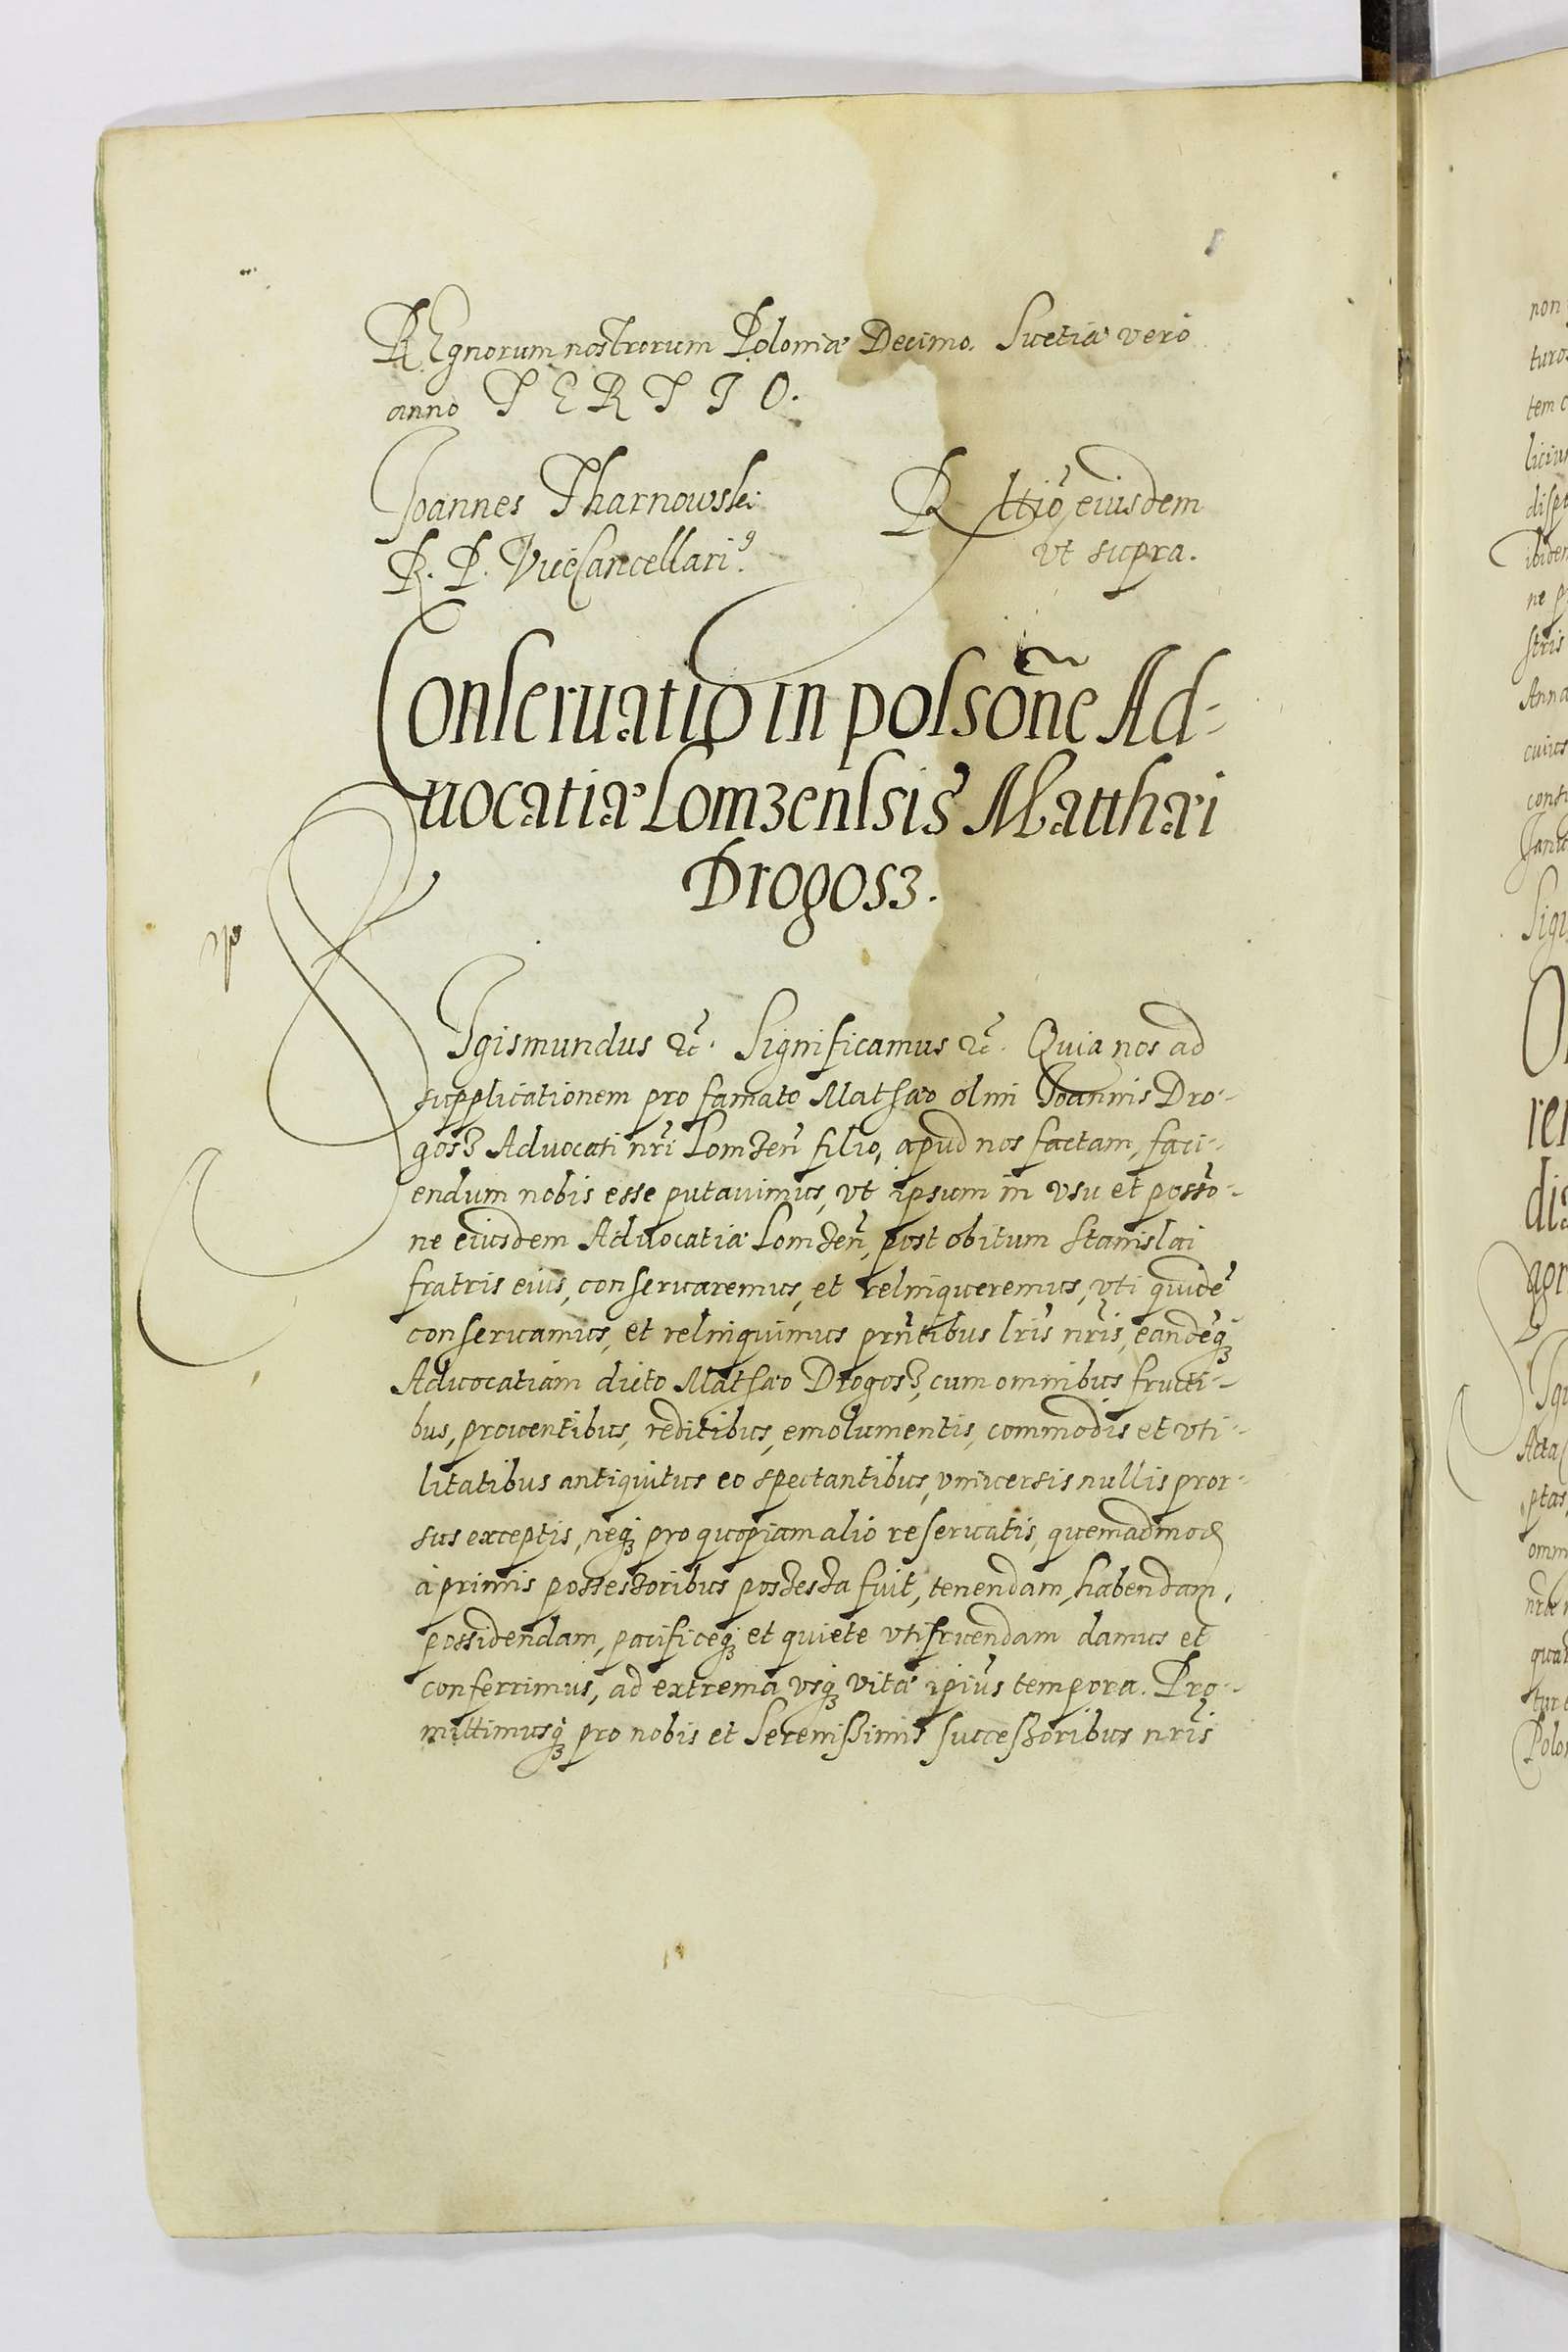 REgnorum nostrorum Poloniæ Decimo. Suetiæ vero
anno TERTIO.
Joannes Tharnowski R ltiõ eiusdem
R. P. ViceCancellariꝰ. vt supra.
Conseruatio in possõne Ad-
uocatiæ Lomzenssis Matthæi
Drogosz.
SIgismundus &c. Significamus &c. Quia nos ad
supplicationem pro famato Mathæo olim Joannis Dro-
gosz Aduocati nri Lomzen filio, apud nos factam, faci-
endum nobis esse putauimus, vt ipsum in vsu et possõ-
ne eiusdem Aduocatiæ Lomzen, post obitum Stanislai
fratris eius, conseruaremus, et relinqueremus, vti quidẽ
conseruamus, et relinquimus prñtibus lris nris, eandẽqꝫ
Aduocatiam dicto Mathæo Drogosz, cum omnibus fructi-
bus, prouentibus, reditibus, emolumentis, commodis et vti-
litatibus antiquitus eo spectantibus, vniuersis nullis pror-
sus exceptis, neqꝫ pro quopiam alio reseruatis, quemadmod
à primis possessoribus possessa fuit, tenendam, habendam,
possidendam, pacificeqꝫ et quiete vtifruendam damus et
conferrimus, ad extrema vsqꝫ vitæ ipius tempora. Pro-
mittimusqꝫ pro nobis et Serenissimis successoribus nris
non
turos
tem
ibidem
ne
stris
Anna
cuius
Acta
ptas